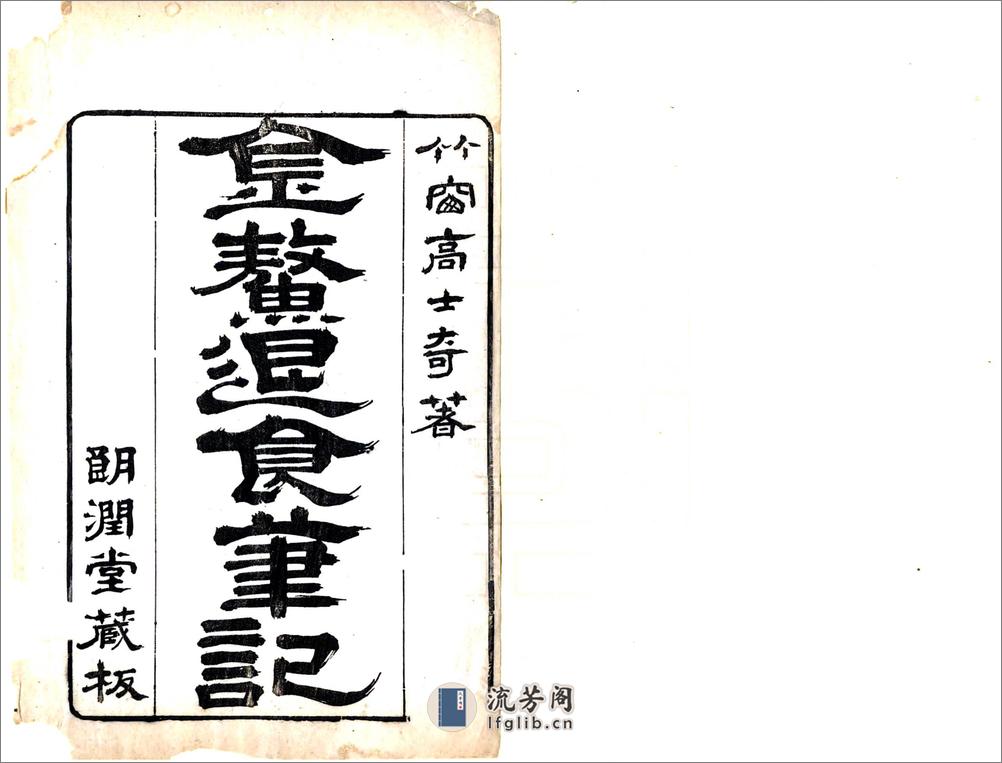 竹窗高士奇著
金鰲退食筆記
朗潤堂藏板
流芳阁
lfglib.cn